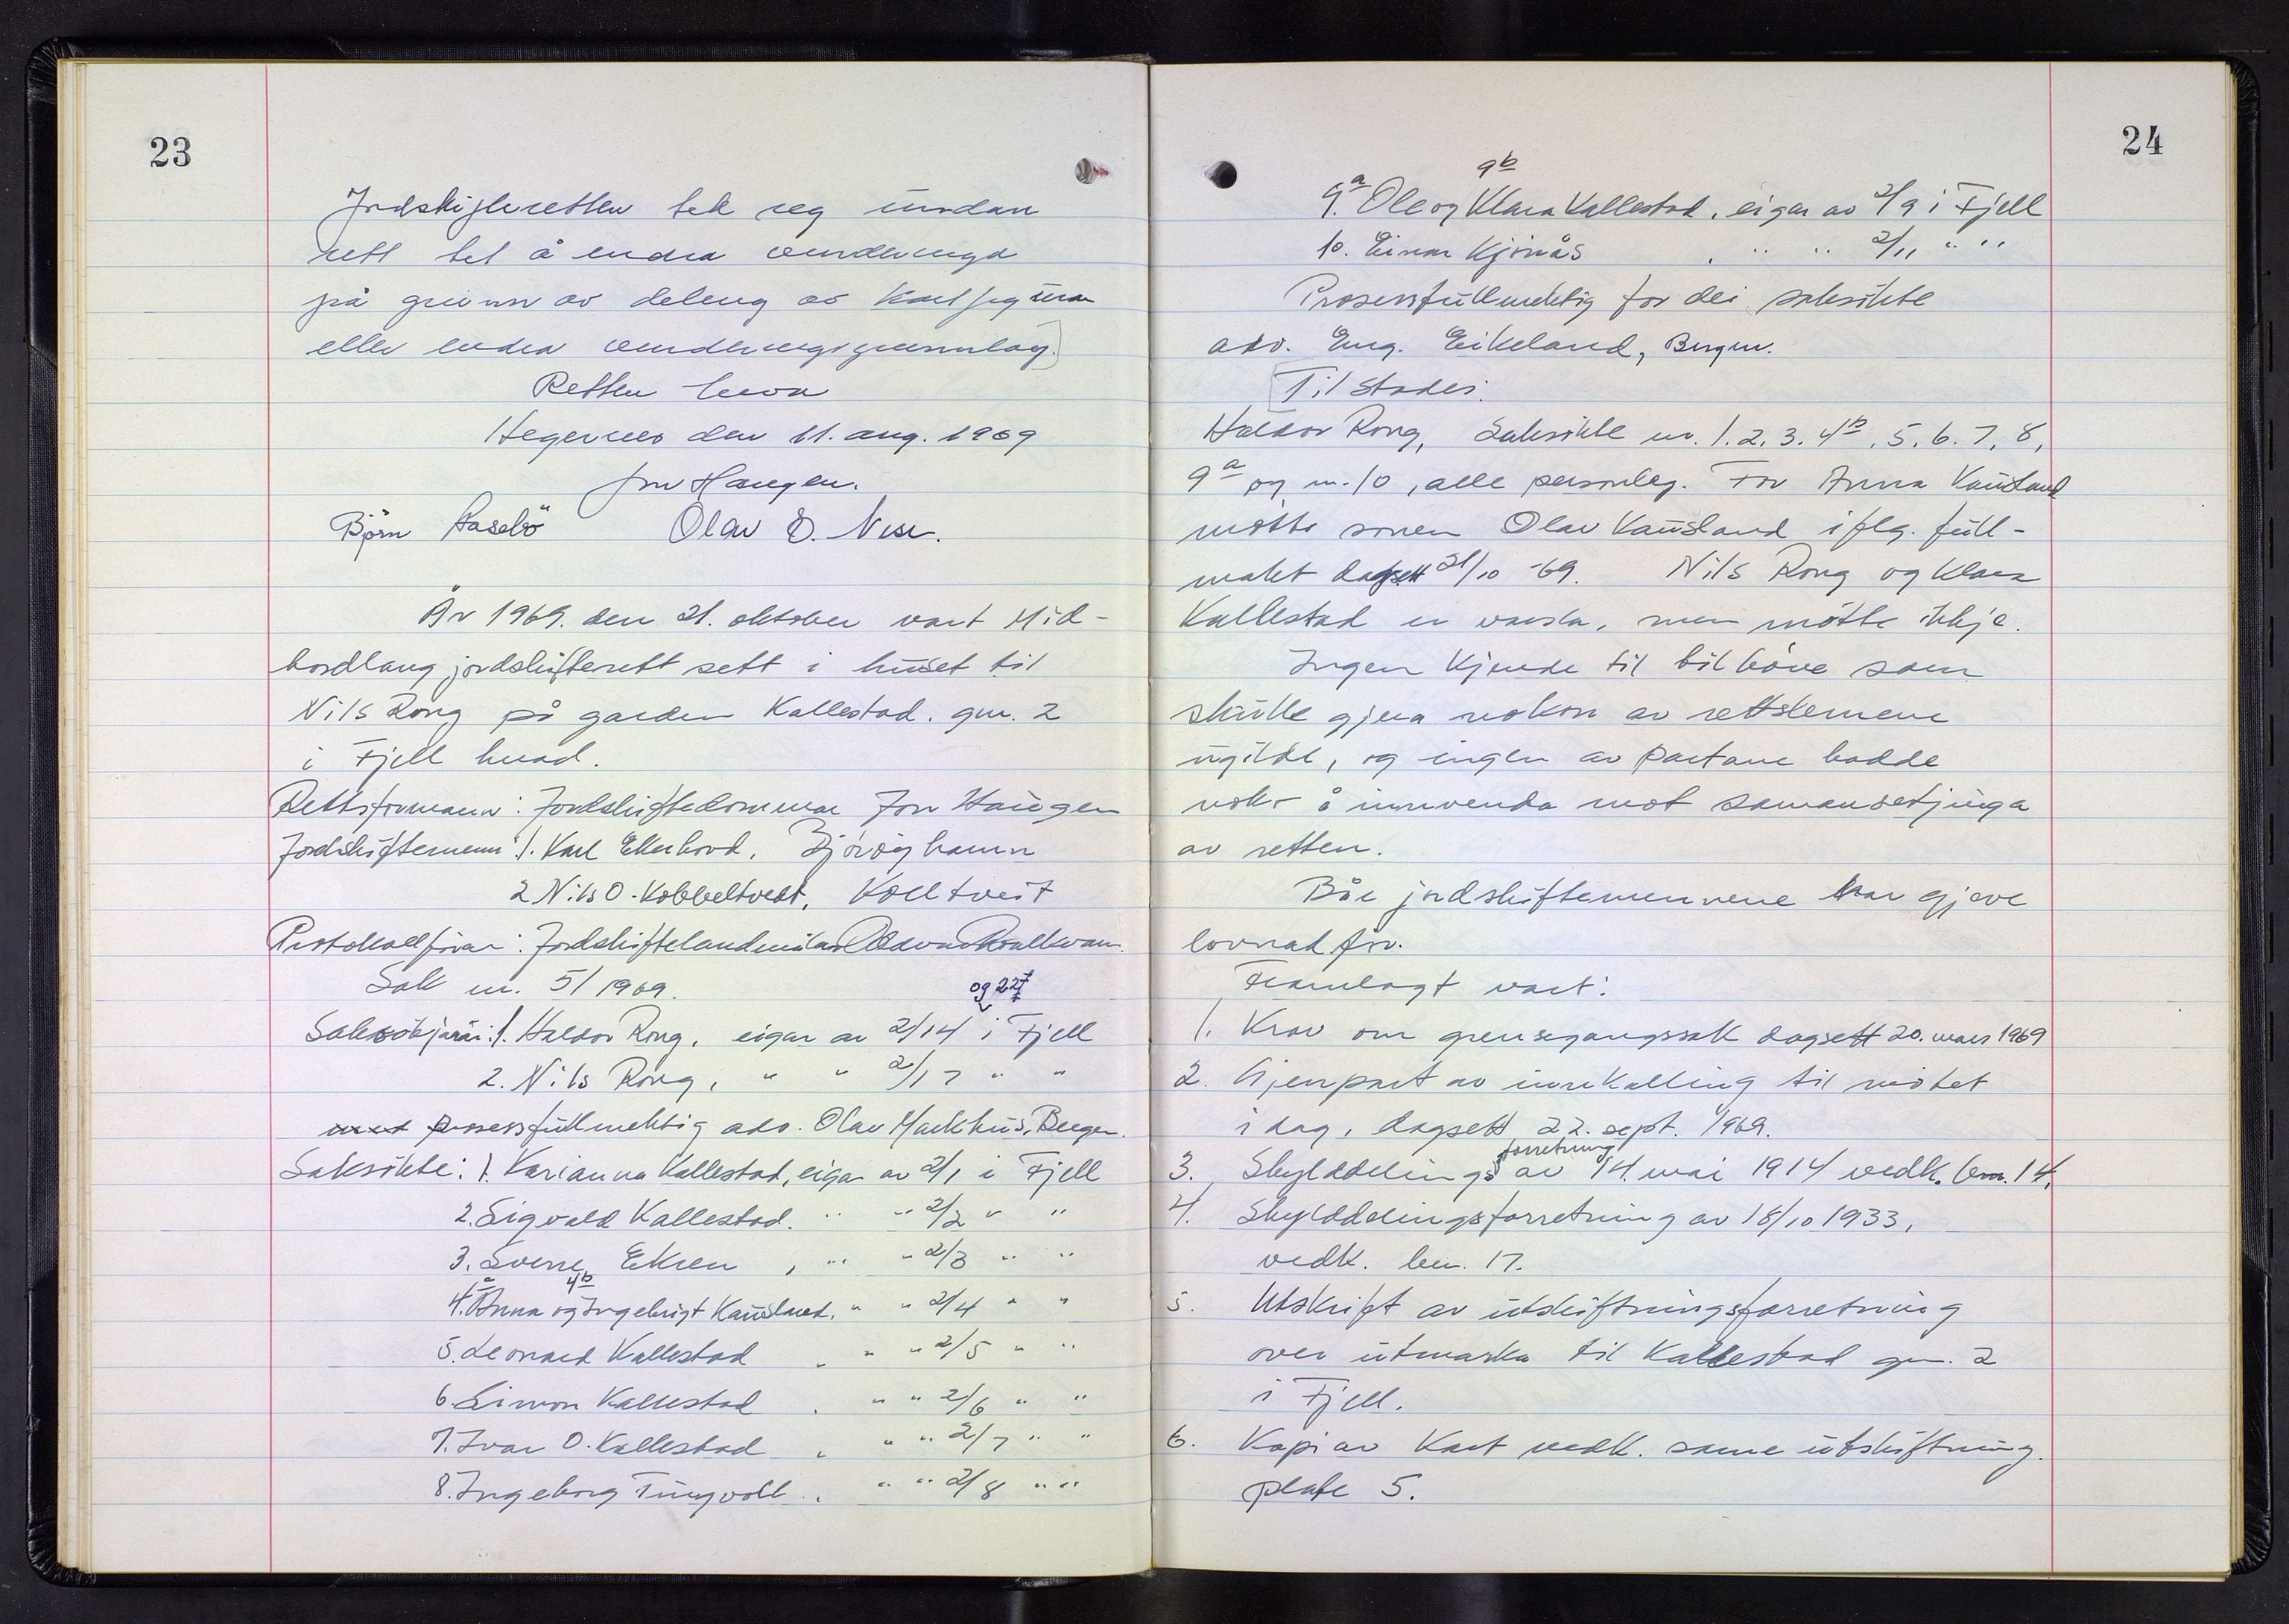 23
Jordskifteretten tek seg undan
rett tel å endra
på grunn av deleng av
eller endra
Retten heva
den 11. aug. 1969
Jon Haugen.
Björn Olav
År 1969. den 21. oktober vart Mid-
hordland jordskifterett sett i huset til
Nils Rong på garden Kallestad. gnr. 2
i Fjell herad.
Rettsformann: Jordskiftedommar Jon Haugen
Jordskiftemenn: 1. Karl Ekerhovd,
2 Nils O. Kobbeltvedt, Kolltveit
Protokollførar: Jordskiftelandmålar
Sak nr. 5/1969.
og 227
Saksökjarar: 1. Haldor Rong, eigar av 2/14 i Fjell
2. Nils Rong, " " 2/17 " "
med prosessfullmektig adv. Olav Markhus, Bergen.
Saksökte: 1. Karianna Kallestad, eigar av 2/1 i Fjell
2. Sigvald Kallestad. " " 2/2 " "
3. Sverre Ekren, " " 2/3 " "
4b
4.a Anna og Ingebrigt Kausland. " " 2/4 " "
5. Leonard Kallestad, " " 2/5 " "
6. Simon Kallestad, " " 2/6 " "
7. Ivar O. Kallestad, " " 2/7 " "
8. Ingeborg Tungvoll, " " 2/8 " "
24
9b
9.a Ole og Klara Kallestad, eigar av 2/9 i Fjell
10. Einar Kjinås, " " 2/11 " "
Prosessfullmektig for dei saksökte
adv. Eng. Eikeland, Bergen.
[Til stades:
Haldor Rong, Saksökte nr. 1. 2. 3. 4b, 5. 6. 7, 8,
9a og nr. 10, alle personleg. For Anna Kausland
mötte sonen Olav Kausland iflg. full-
makt dagsett 21/10 -69. Nils Rong og Klara
Kallestad er varsla, men mötte ikkje.
Ingen kjende til tilhöve som
skulle gjera nokon av rettslemene
ugilde, og ingen av partane hadde
noko å innvenda mot samansetjinga
av retten.
Båe jordskiftemennene har gjeve
lovnad för.
Framlagt vart:
1. Krav om grensegangssak dagsett 20. mars 1969
2. Gjenpart av innkalling til mötet
i dag, dagsett 22. sept. 1969.
forretning
3. Skylddelings av 14. mai 1914 vedk. bnr. 14.
4. Skylddelingsforretning av 18/10 1933,
vedk. bnr. 17.
5. Utskrift av utskiftningsforretning
over utmarka til Kallestad gnr. 2
i Fjell.
6. Kopi av Kart vedk. same utskiftning.
plate 5.